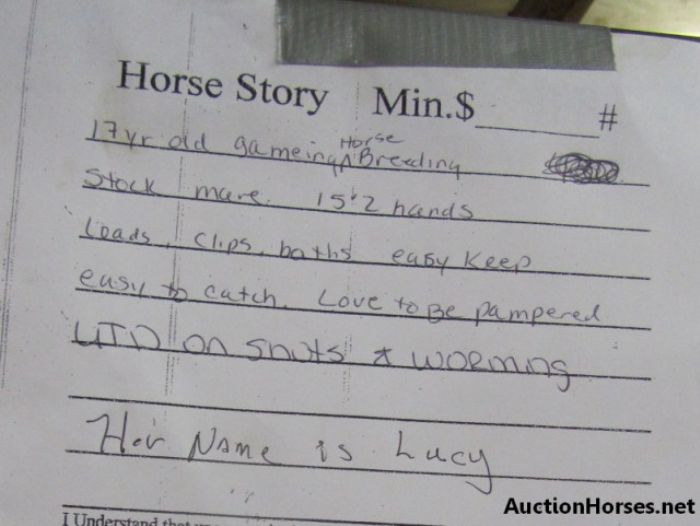 Horse Story Min.$ #
17yr old gameing Horse Breeding
Stock mare. 15'2 hands
Loads, clips, baths easy Keep
easy to catch. Love to Be pampered
UTD on shots & WORMING
Her Name is Lucy
I Understand that
AuctionHorses.net